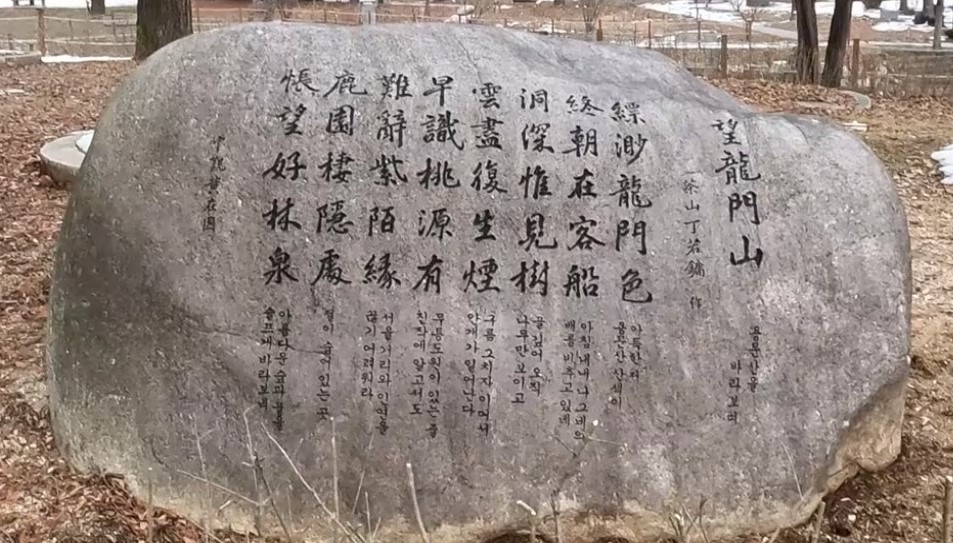 望龍門山
용문산을
바라보며
茶山丁若鏞 作
縹渺龍門色
아득한 저
용문산 산색이
終朝在客船
아침내내 나그네의
배를 비추고 있네
洞深惟見樹
골 깊어 오직
나무만 보이고
雲盡復生煙
구름 그치자 이어서
안개가 일어난다
早識桃源有
무릉도원이 있는 줄
진작에 알고서도
難辭紫陌緣
서울거리와 인연을
끊기 어려워라
鹿園棲隱處
절이 숨어 있는 곳
悵望好林泉
아름다운 숲과 물을
슬프게 바라보네